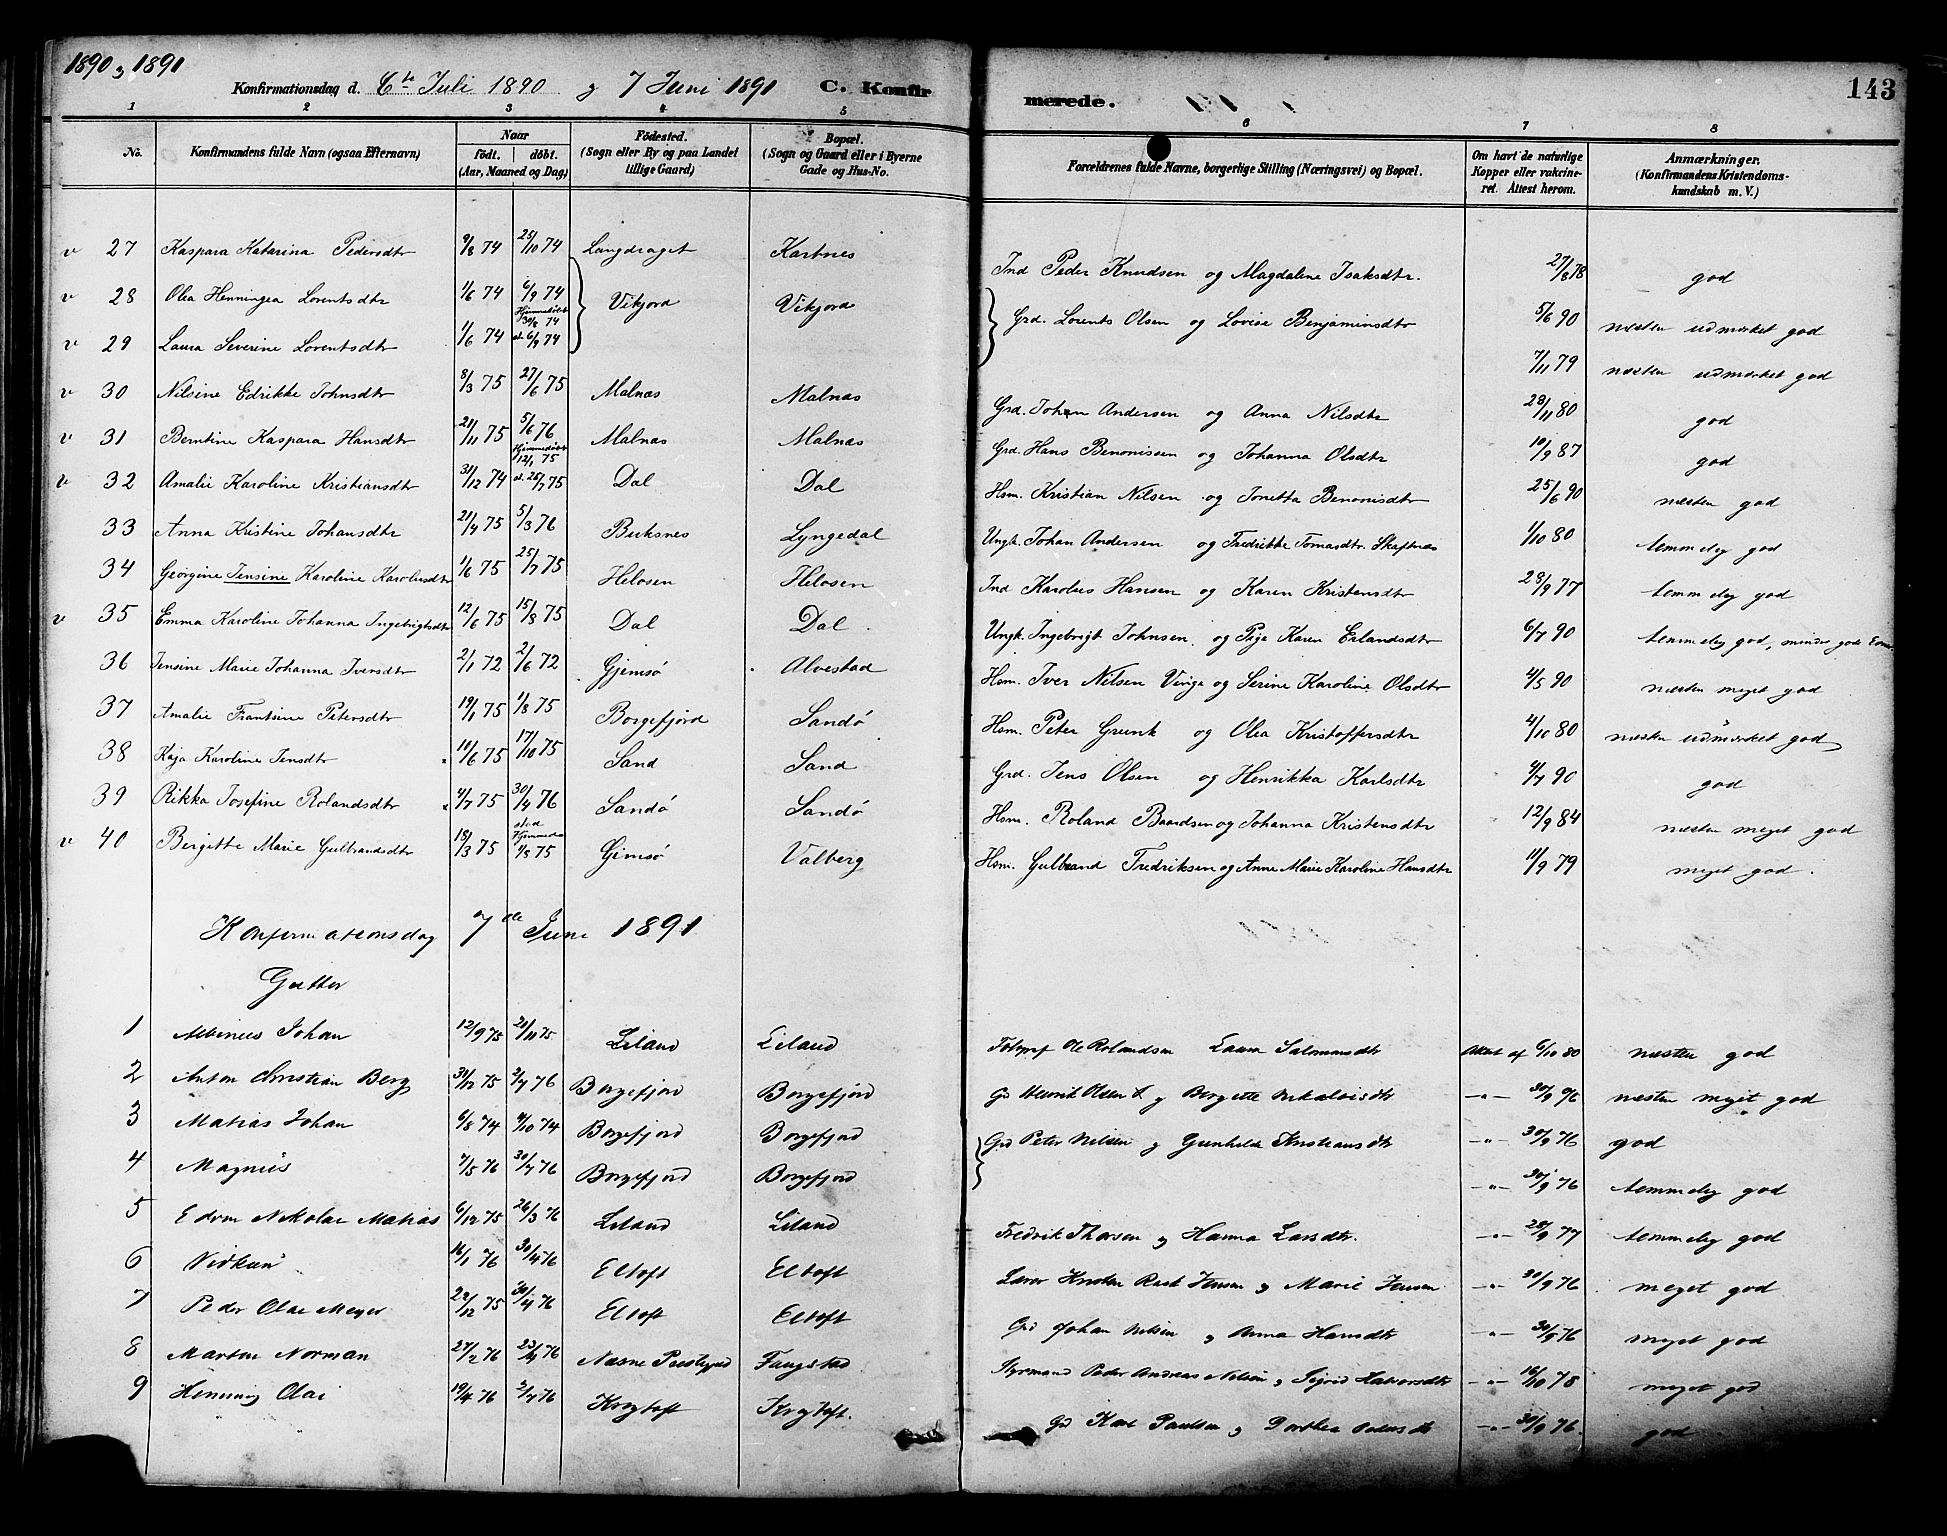 1890 og 1891
143
Konfirmationsdag d. 6te Juli 1890 og 7 Juni 1891 C. Konfirmerede.
1 2 3 4 5 6 7 8
No. Konfirmandens fulde Navn (ogsaa Efternavn) Naar født. døbt. (Aar, Maaned og Dag) Fødested. (Sogn eller By og paa Landet tillige Gaard) Bopæl. (Sogn og Gaard eller i Byerne Gade og Hus-No. Forældrenes fulde Navne, borgerlige Stilling (Næringsvei) og Bopæl. Om havt de naturlige Kopper eller vakcineret. Attest herom. Anmærkninger. (Konfirmandens Kristendomskundskab m. V.)
v 27 Kaspara Katarina Pedersdtr 9/8 74 25/10 74 Langdraget Kartnes Ind Peder Knudsen og Magdaline Isaksdtr. 27/8 78 god
v 28 Olea Henningea Lorentsdtr 1/6 74 6/9 74 Vikjord Vikjord Grd. Lorents Olsen og Lovise Benjaminsdtr 5/6 90 næsten udmærket god
v 29 Laura Severine Lorentsdtr 1/6 74 Hjemmedøbt 30/8 74 st. 6/9 74 7/11 79 næsten udmærket god
v 30 Nilsine Edrikke Johnsdtr 8/3 75 27/6 75 Malnæs Malnæs Grd. Johan Andersen og Anna Nilsdtr 28/11 80 god
v 31 Berntine Kaspara Hansdtr 21/11 75 5/6 76 Malnæs Malnæs Grd. Hans Benonissen og Johanna Olsdtr 10/9 87 god
v 32 Amalie Karoline Kristiansdtr 31/12 74 Hjemmedøbt 12/1 75 st. 25/7 75 Dal Dal Hsm. Kristian Nilsen og Jonetta Benonisdtr 25/6 90 næsten god
33 Anna Kristine Johansdtr 21/9 75 5/3 76 Buksnes Lyngedal Ungk. Johan Andersen og Fredrikke Tomasdtr. Skaftnæs 1/10 80 temmelig god
34 Georgine Jensine Karoline Karolusdtr 1/6 75 25/7 75 Helosen Helosen Ind Karolus Hansen og Karen Kristensdtr 28/9 77 temmelig god
v 35 Emma Karoline Johanna Ingebrigtsdtr 12/6 75 15/8 75 Dal Dal Ungk. Ingebrigt Johnsen og Pige Karen Erlandsdtr 6/7 90 temmelig god, mindre gode
36 Jensine Marie Johanna Iversdtr 2/1 72 2/6 72 Gjemsø Alvestad Hsm. Iver Nilsen Vinge og Serine Karoline Olsdtr 4/5 90 næsten meget god
37 Amalie Frantsine Petersdtr 19/1 75 1/8 75 Borgefjord Sandø Hsm. Peter Grunk og Olea Kristoffersdtr 4/10 80 næsten udmærket god
38 Kaja Karoline Jensdtr 10/6 75 17/10 75 Sand Sand Grd. Jens Olsen og Henrikka Karlsdtr 4/7 90 god
39 Rikka Josefine Rolandsdtr 4/7 75 30/4 76 Sandø Sandø Hsm. Roland Baardsen og Johanna Kristensdtr 12/9 84 næsten meget god
v 40 Bergette Marie Gulbrandsdtr 18/3 75 1/8 75 Gimsø Valberg Hsm. Gulbrand Fredriksen og Anne Marie Karoline Hansdtr 11/9 79 meget god.
Konfirmationsdag 7de Juni 1891
Gutter
1 Albinus Johan 12/9 75 21/11 75 Liland Liland Ole Rolandsen Laura Salomonsdtr Attest af 6/10 80 næsten god
2 Anton Christian Berg 31/12 75 2/7 76 Borgefjord Borgefjord Gd Henrik Olsen og Bergitte Nikolaisdtr -"- 30/9 76 næsten meget god
3 Matias Johan 6/8 74 4/10 74 Borgefjord Borgefjord Gd Peter Nilsen og Gunhilde Kristiansdtr -"- 30/9 76 god
4 Magnus 7/5 76 30/7 76 Borgefjord Borgefjord -"- 30/9 76 temmelig god
5 Edvin Nikolai Matias 6/12 75 26/3 76 Liland Liland Fredrik Thorsen og Hanna Larsdtr. -"- 28/9 77 temmelig god
6 Vidkun 16/1 76 30/4 76 Eltoft Eltoft Lærer Kristen Jensen og Marie Jensen -"- 30/9 76 meget god
7 Peder Olai Meyer 22/12 75 30/4 76 Eltoft Eltoft Gd Johan Nilsen og Anna Hansdtr -"- 30/9 76 meget god
8 Martin Norman 27/2 76 Næsne Præstegjd Faugstad Styrmand Peder Andreas Nilsen og Sigrid Halvorsdtr -"- 16/10 78 meget god
9 Henning Olai 19/4 76 2/7 76 Krogtoft Krogtoft. Gd Karl Paulsen og Dorthea Pedersdtr -"- 30/9 76. god